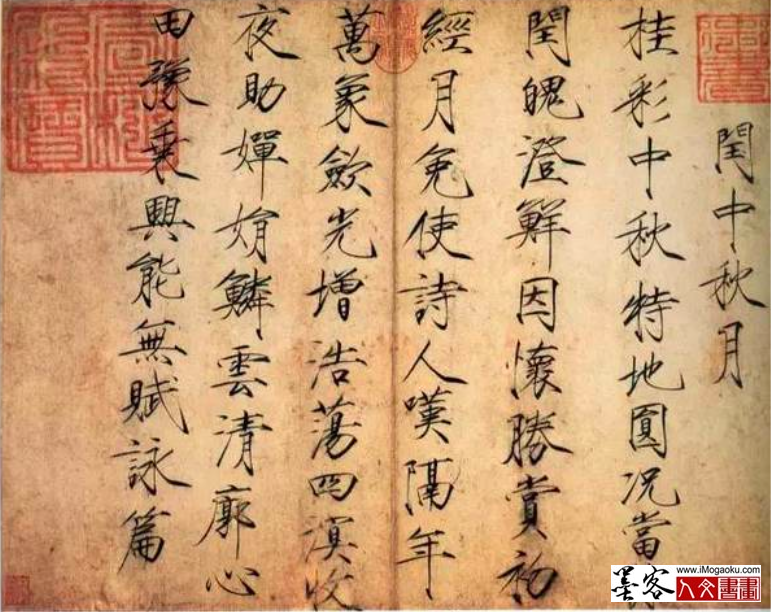 閏中秋月
桂彩中秋特地圓況當
閏魄澄鮮因懷勝賞初
經月免使詩人嘆隔年
萬象歛光增浩蕩四溟收
夜助嬋娟鱗雲清廓心
田豫乘興能無賦詠篇
墨客
www.iMogaoku.com
人文書畫